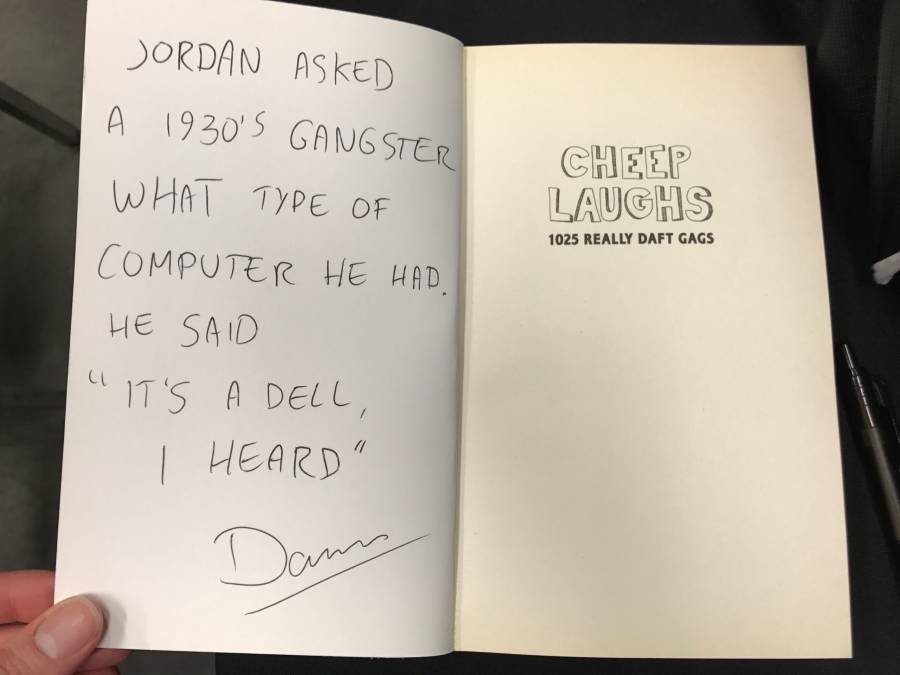 JORDAN ASKED
A 1930'S GANGSTER
WHAT TYPE OF
COMPUTER HE HAD.
HE SAID
"IT'S A DELL,
I HEARD"
CHEEP
LAUGHS
1025 REALLY DAFT GAGS